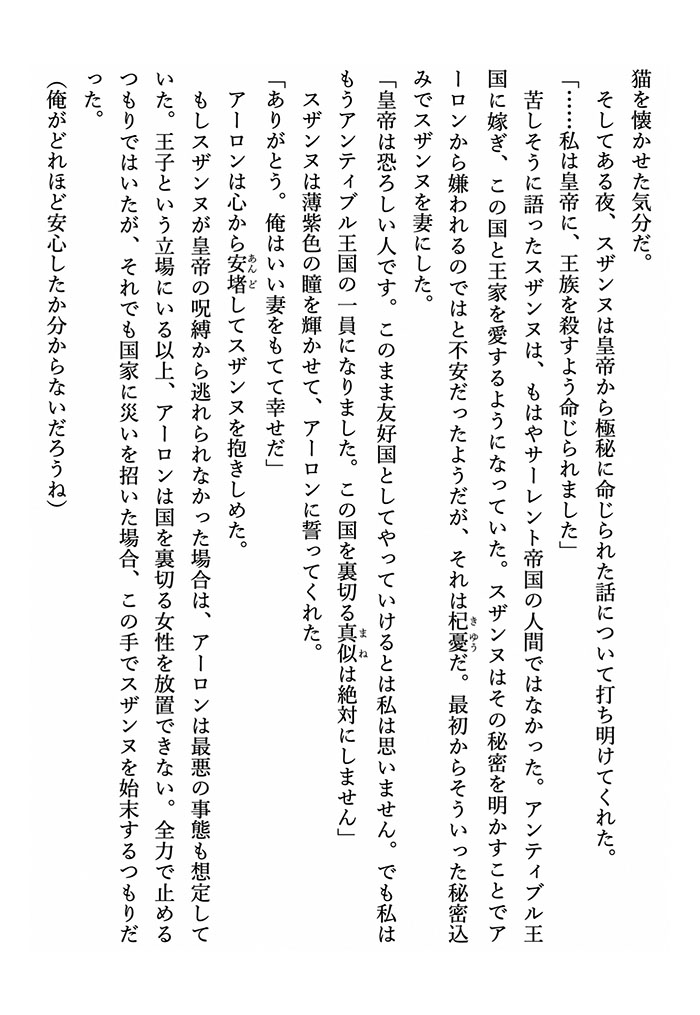 猫を懐かせた気分だ。
　そしてある夜、スザンヌは皇帝から極秘に命じられた話について打ち明けてくれた。
「……私は皇帝に、王族を殺すよう命じられました」
　苦しそうに語ったスザンヌは、もはやサーレント帝国の人間ではなかった。アンティブル王
国に嫁ぎ、この国と王家を愛するようになっていた。スザンヌはその秘密を明かすことでア
ーロンから嫌われるのではと不安だったようだが、それは杞憂だ。最初からそういった秘密込
みでスザンヌを妻にした。
「皇帝は恐ろしい人です。このまま友好国としてやっていけるとは私は思いません。でも私は
もうアンティブル王国の一員になりました。この国を裏切る真似は絶対にしません」
　スザンヌは薄紫色の瞳を輝かせて、アーロンに誓ってくれた。
「ありがとう。俺はいい妻をもてて幸せだ」
　アーロンは心から安堵してスザンヌを抱きしめた。
　もしスザンヌが皇帝の呪縛から逃れられなかった場合は、アーロンは最悪の事態も想定して
いた。王子という立場にいる以上、アーロンは国を裏切る女性を放置できない。全力で止める
つもりではいたが、それでも国家に災いを招いた場合、この手でスザンヌを始末するつもりだ
った。
（俺がどれほど安心したか分からないだろうね）